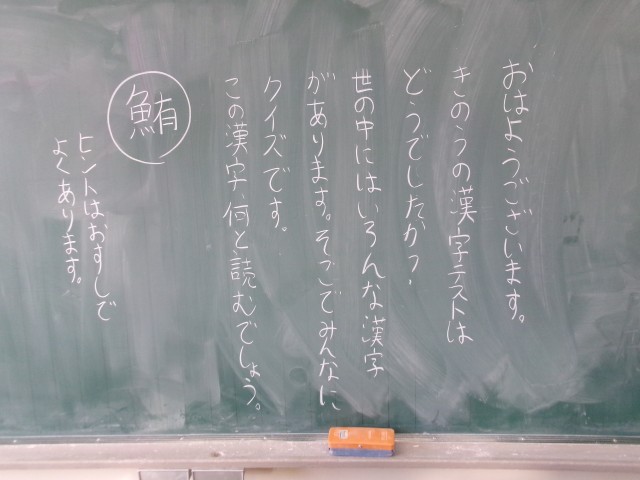 おはようございます。
きのうの漢字テストは
どうでしたか？
世の中にはいろんな漢字
があります。そこでみんなに
クイズです。
この漢字、何と読むでしょう。
鮪
ヒントはおすしで
よくあります。